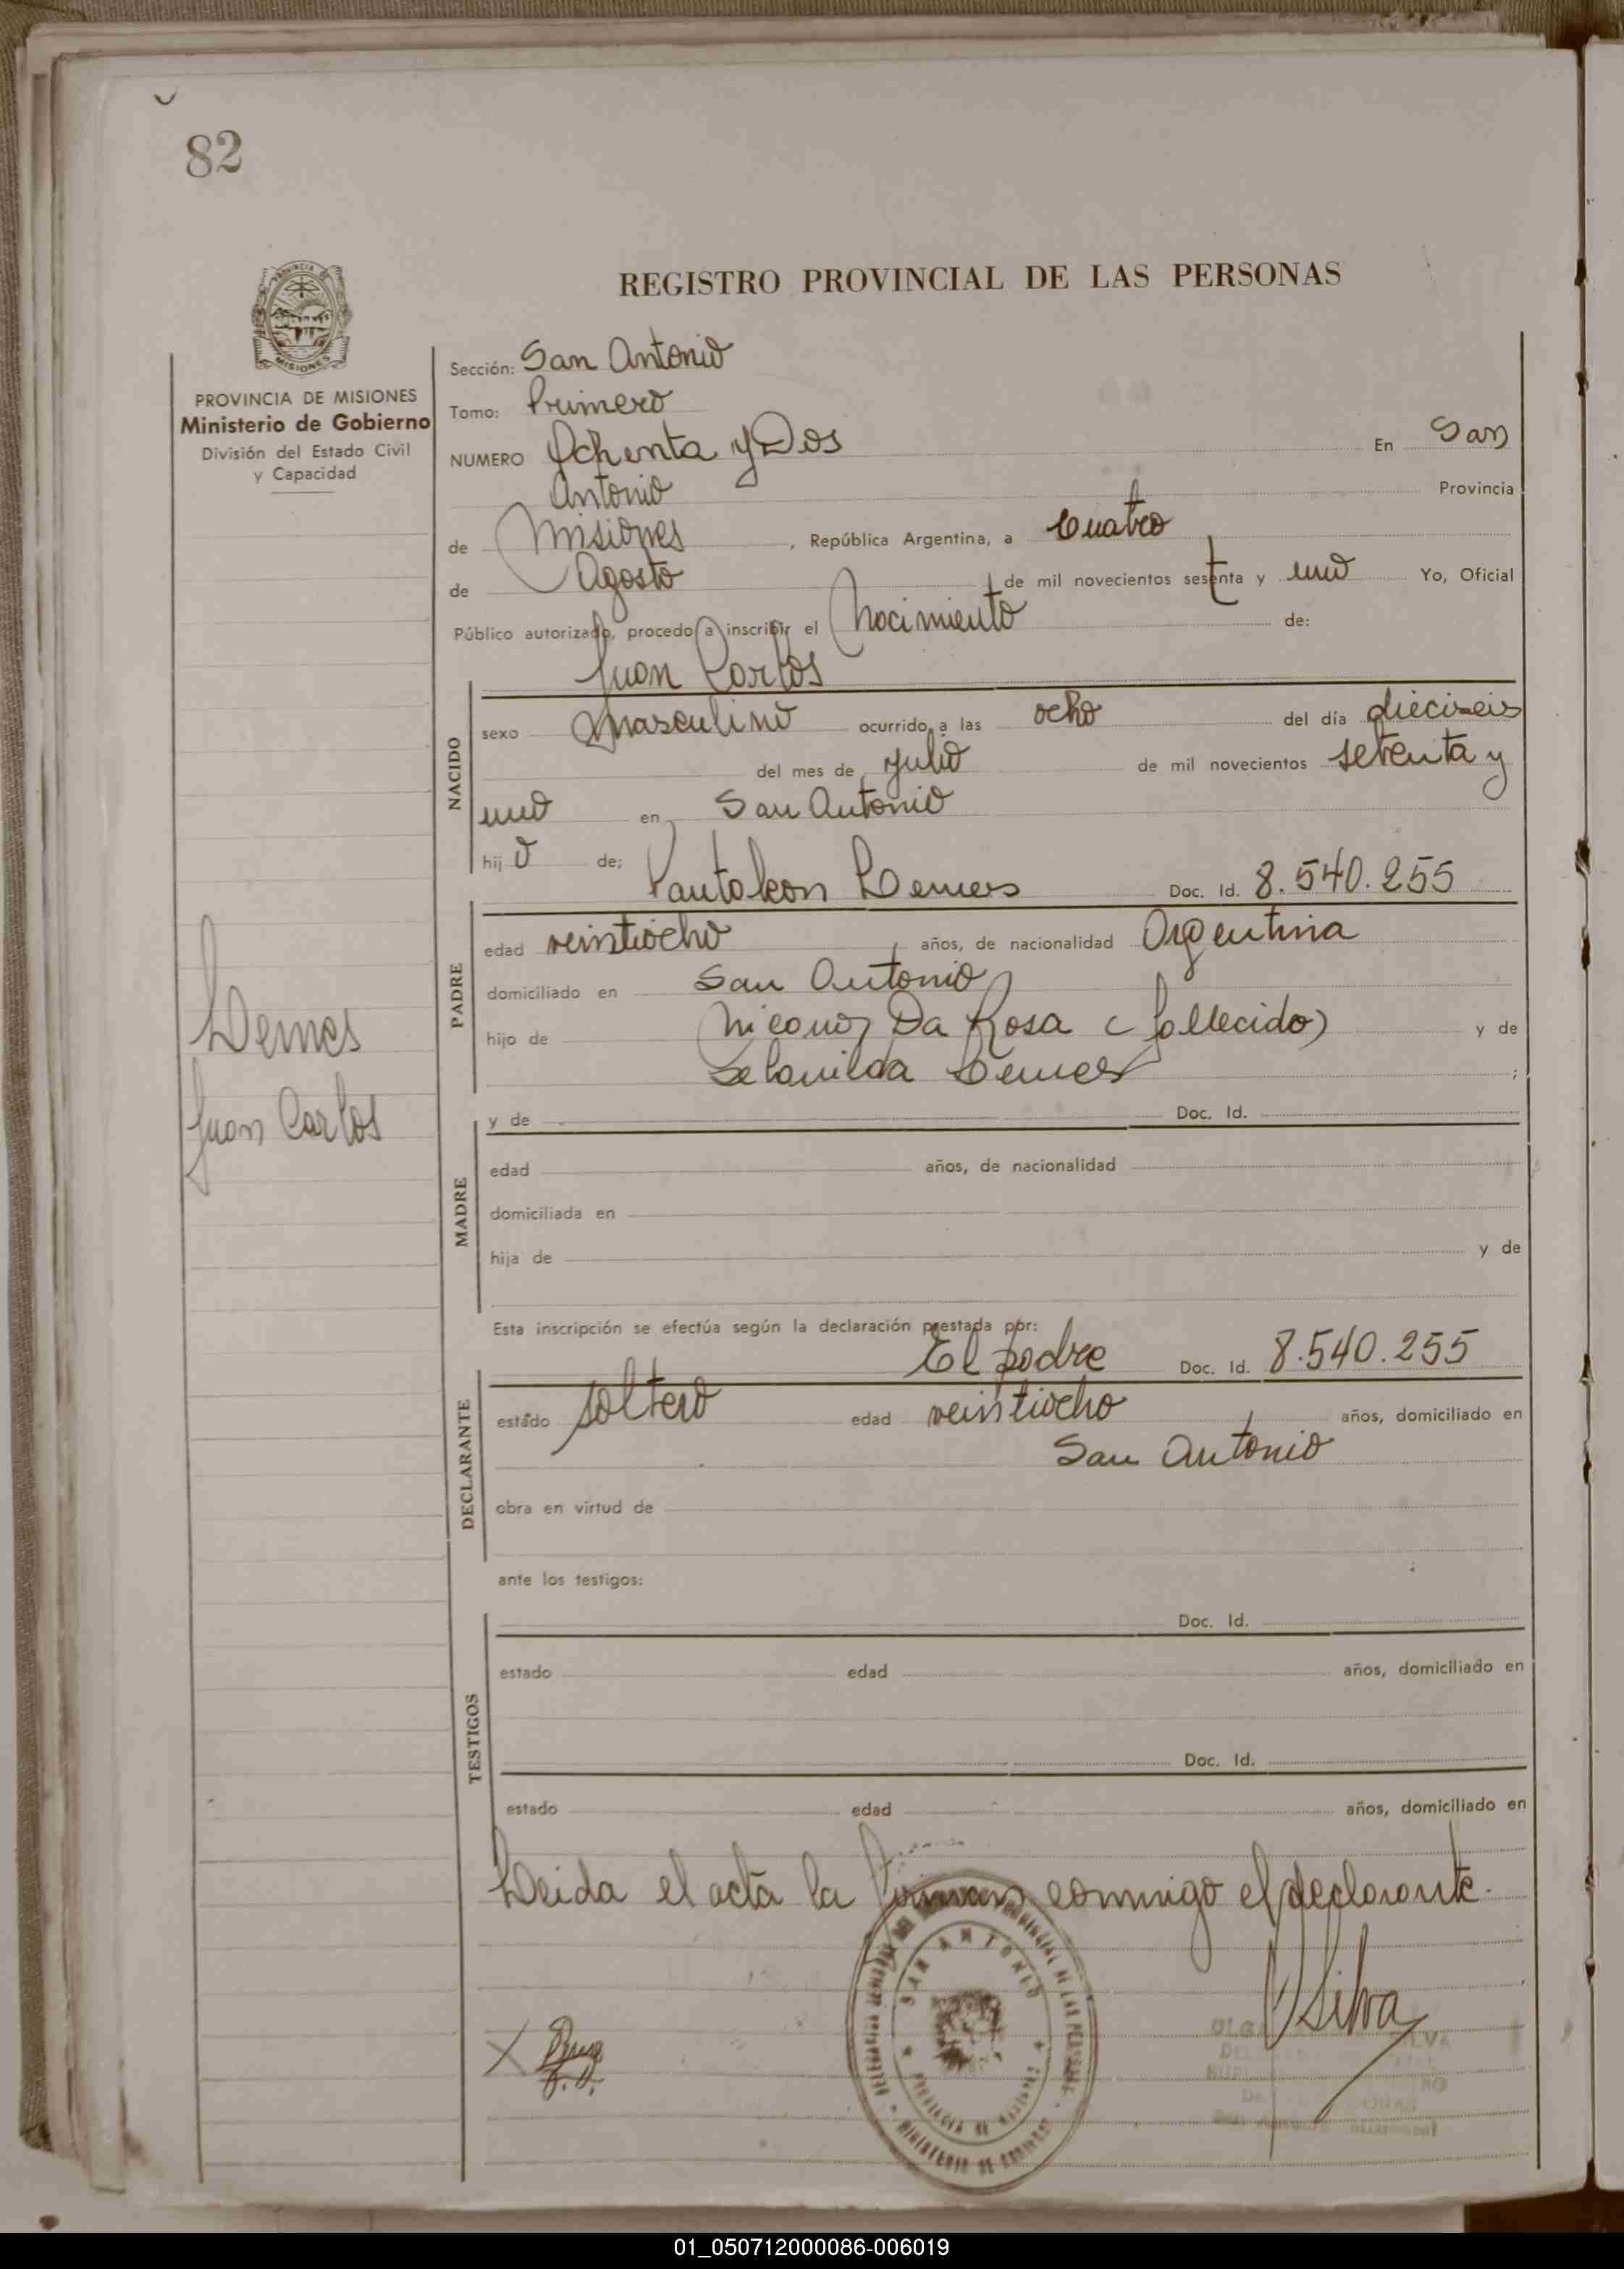 82
REGISTRO PROVINCIAL DE LAS PERSONAS
PROVINCIA DE MISIONES
Ministerio de Gobierno
División del Estado Civil
y Capacidad
Sección: San Antonio
Tomo: Primero
NUMERO Ochenta y Dos En San
Antonio Provincia
de Misiones, República Argentina, a cuatro
de Agosto de mil novecientos sesenta y uno Yo, Oficial
Público autorizado, procedo a inscribir el Nacimiento de:
Juan Carlos
NACIDO
sexo Masculino ocurrido a las ocho del día dieciseis
del mes de Julio de mil novecientos setenta y
uno en San Antonio
hijo de; Pantaleon Lemes Doc. Id. 8.540.255
PADRE
edad veintiocho años, de nacionalidad Argentina
domiciliado en San Antonio
hijo de Nicanor Da Rosa (fallecido) y de
Lemes ;
Lemes
Juan Carlos
MADRE
y de Doc. Id.
edad años, de nacionalidad
domiciliada en
hija de y de
Esta inscripción se efectúa según la declaración prestada por:
El padre Doc. Id. 8.540.255
DECLARANTE
estado soltero edad veintiocho años, domiciliado en
San Antonio
obra en virtud de
ante los testigos:
Doc. Id.
TESTIGOS
estado edad años, domiciliado en
Doc. Id.
estado edad años, domiciliado en
Leida el acta la firman conmigo el declarante.
SAN ANTONIO
PROVINCIA DE MISIONES
MINISTERIO DE GOBIERNO
X
Silva
01_050712000086-006019